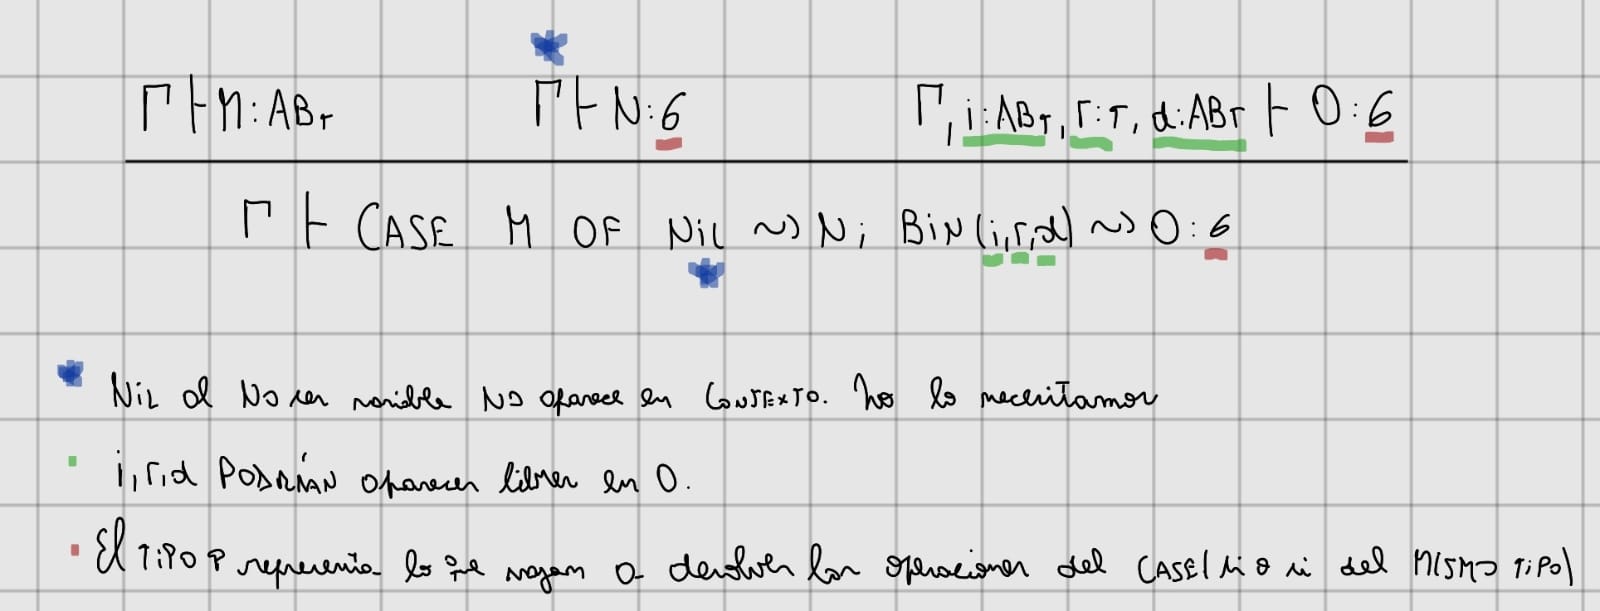 Γ ⊢ M : AB_τ    Γ ⊢ N : σ    Γ, i : AB_τ, r : τ, d : AB_τ ⊢ O : σ
Γ ⊢ CASE M OF Nil ⤳ N ; Bin(i,r,d) ⤳ O : σ
Nil al No ser variable NO aparece en CONTEXTO. No lo necesitamos
i,r,d PODRÍAN aparecer libres en O.
El TIPO representa lo que vayan a devolver las operaciones del CASE (si o si del MISMO TIPO)